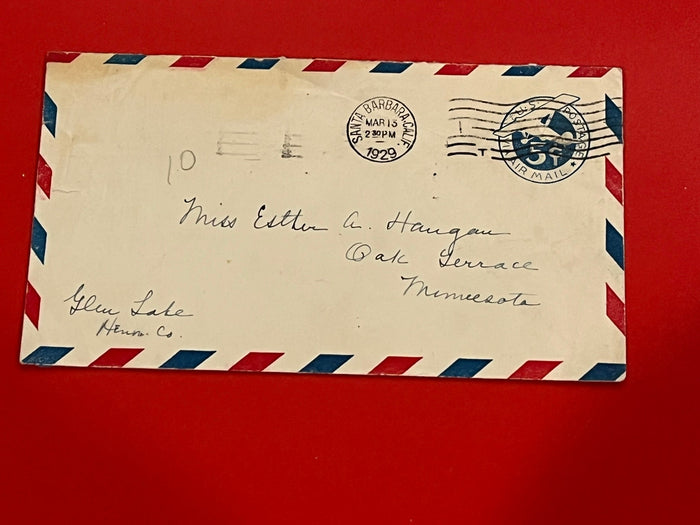 SANTA BARBARA, CALIF.
MAR 13
2 30 PM
1929
U.S. POSTAGE
5¢
VIA AIR MAIL
10
Miss Esther A. Haugan
Oak Terrace
Minnesota
Glen Lake
Henn. Co.